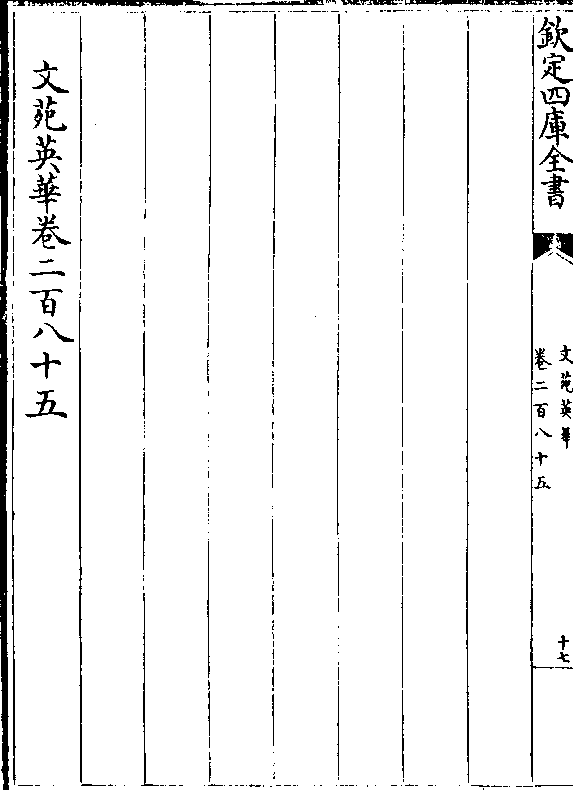 欽定四庫全書
文苑英華
卷二百八十五
十七
文苑英華卷二百八十五